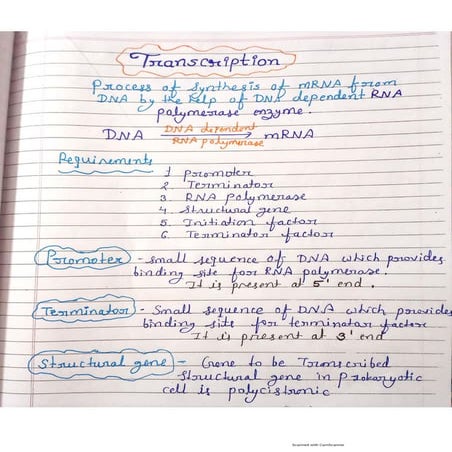 Transcription
Process of synthesis of mRNA from
DNA by the help of DNA dependent RNA
polymerase enzyme.
DNA DNA dependent RNA polymerase → mRNA
Requirements
1 promoter
2. Terminator
3. RNA Polymerase
4. Structural gene
5. Initiation factor
6. Terminator factor
Promoter - small sequence of DNA which provides
binding site for RNA polymerase.
It is present at 5' end.
Terminator - Small sequence of DNA which provides
binding site for terminator factor
It is present at 3' end
Structural gene - Gene to be Transcribed
Structural gene in Prokaryotic
cell is polycistronic
Scanned with CamScanner